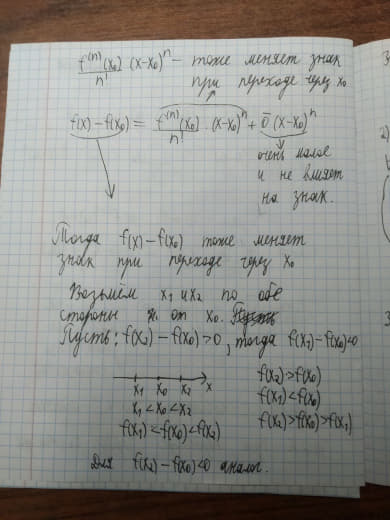 f⁽ⁿ⁾(x₀)/n! (x-x₀)ⁿ - тоже меняет знак
при переходе через x₀
f(x) - f(x₀) = f⁽ⁿ⁾(x₀)/n! · (x-x₀)ⁿ + ō(x-x₀)ⁿ
очень малое
и не влияет
на знак.
Тогда f(x) - f(x₀) тоже меняет
знак при переходе через x₀
Возьмём x₁ и x₂ по обе
стороны от x₀.
Пусть: f(x₂) - f(x₀) > 0, тогда f(x₁) - f(x₀) < 0
x₁ x₀ x₂ x
x₁ < x₀ < x₂
f(x₁) < f(x₀) < f(x₂)
f(x₂) > f(x₀)
f(x₁) < f(x₀)
f(x₂) > f(x₀) > f(x₁)
Для f(x₂) - f(x₀) < 0 аналог.